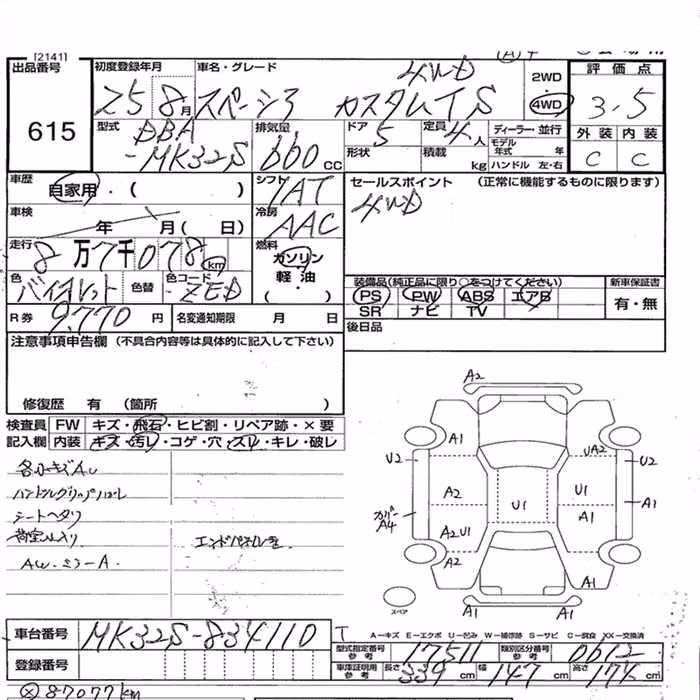 [2141]
出品番号 初度登録年月 車名・グレード 4WD 2WD 評価点
615 25 8月 スペーシア カスタムTS 4WD 3.5
型式 DBA-MK32S 排気量 660cc ドア 5 定員 4人 ディーラー・並行 外装 内装
形状 積載 kg モデル年式 年 ハンドル 左・右 C C
車歴 自家用・( ) シフト IAT セールスポイント (正常に機能するものに限ります)
車検 年 月( 日) 冷房 AAC 4WD
走行 8万7千078km 燃料 ガソリン 軽油 ・( )
色 バイオレット 色替 色コード ZED
装備品(純正品に限り○をつけてください) 新車保証書
PS PW ABS エアB 有・無
SR ナビ TV
R券 9,770円 名変通知期限 月 日 後日品
注意事項申告欄 (不具合内容等は具体的に記入して下さい)
修復歴 有 (箇所
検査員 FW キズ・飛石・ヒビ割・リペア跡・×要
記入欄 内装 キズ・汚レ・コゲ・穴・スリ・キレ・破レ
各小キズAu
ハンドルグリップハガレ
シートヘタリ
荷室 入り エンドパネル
AW.ミラーA
A2
A1 UA2
U2 U2
A2 U1 U1
A1 A1
カバーA4
A2 U1
A2 A1
スペア A1 A1
車台番号 MK32S-834110
T A-キズ E-エクボ U-凹み W-補修跡 S-サビ C-腐食 XX-交換済
型式指定番号 参考 17511 類別区分番号 参考 0612
登録番号 車庫証明用 参考 長さ 339cm 幅 147cm 高さ 174cm
Ⓧ87077km